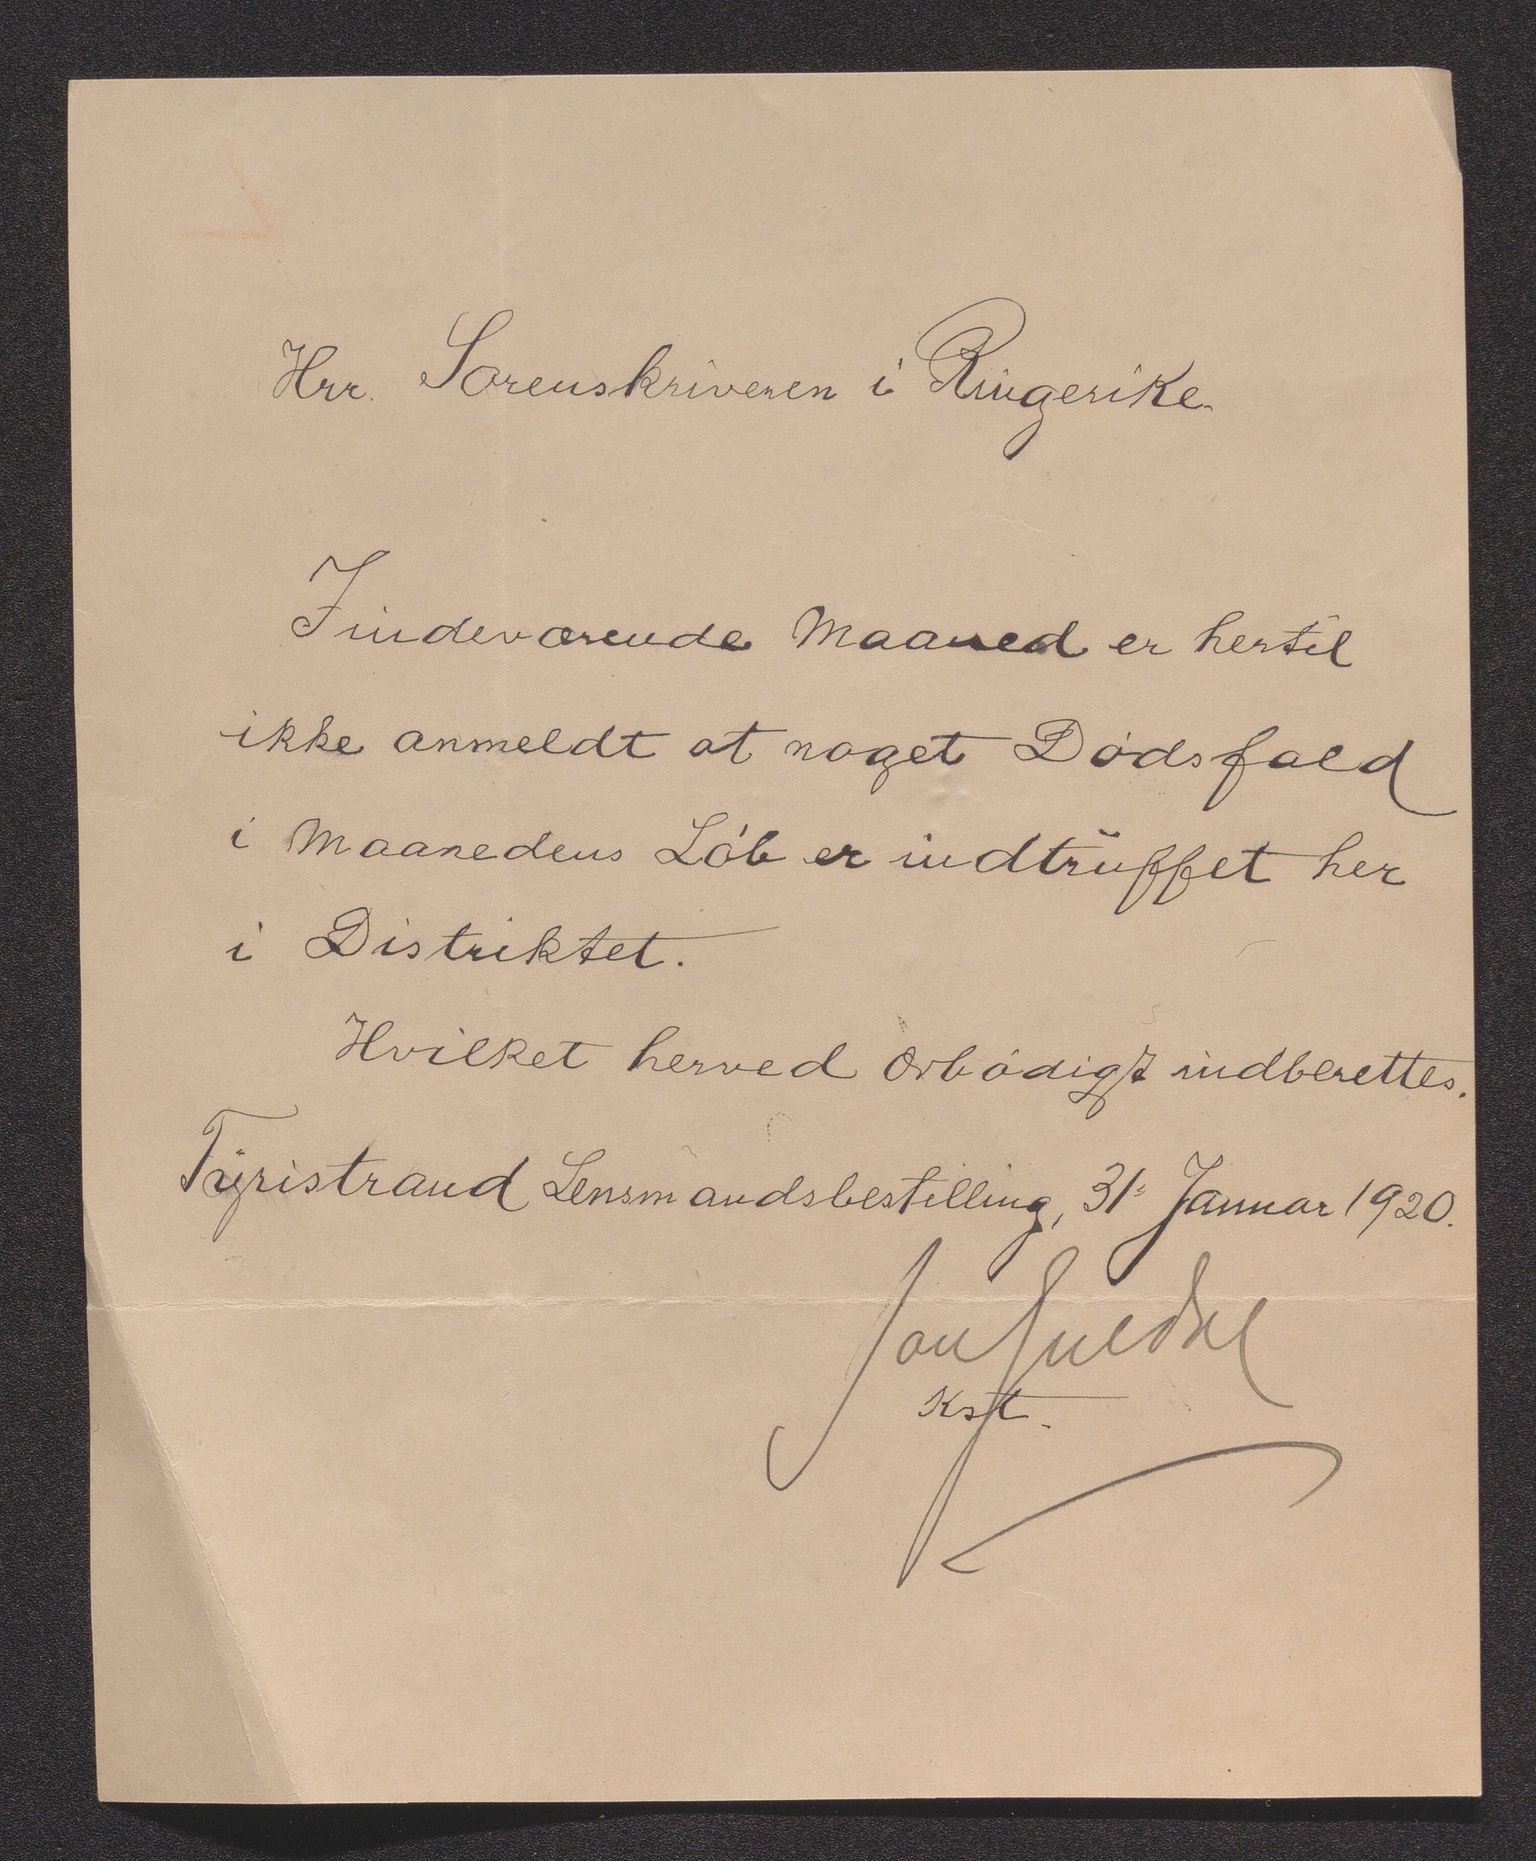 Hrr. Sorenskriveren i Ringerike.
Indeværende Maaned er hertil
ikke anmeldt at noget Dødsfald
i Maanedens Løb er indtruffet her
i Distriktet.
Hvilket herved ærbødigst indberettes.
Tyristrand Lensmandsbestilling, 31' Januar 1920.
Kst.